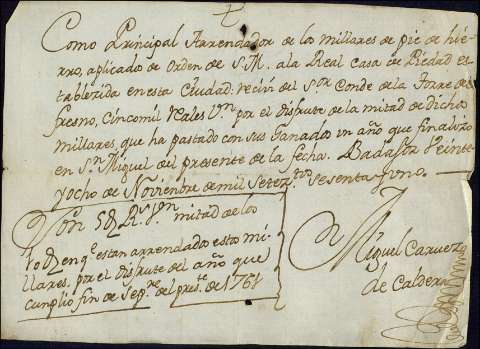 Como Principal Arrendador de los millares de pie de hie-
rro, aplicado de Orden de S.M. a la Real Casa de Piedad es-
tablezida en esta Ciudad: reciví del Sor Conde de la Torre del
fresno, Cincomil reales Vn por el disfrute de la mitad de dichos
millares, que ha pastado con sus Ganados un año que finalizó
en Sn Miguel del presente de la fecha. Badajoz Veinte
y ocho de Noviembre de mil Setez.tos sesenta y uno.
Son 5U Rs Vn mitad de los
10U en q.e estan arrendados estos mi-
llares, por el disfrute del año que
cumplió fin de Sep.re del pres.te de 1761
Miguel
de Caldera